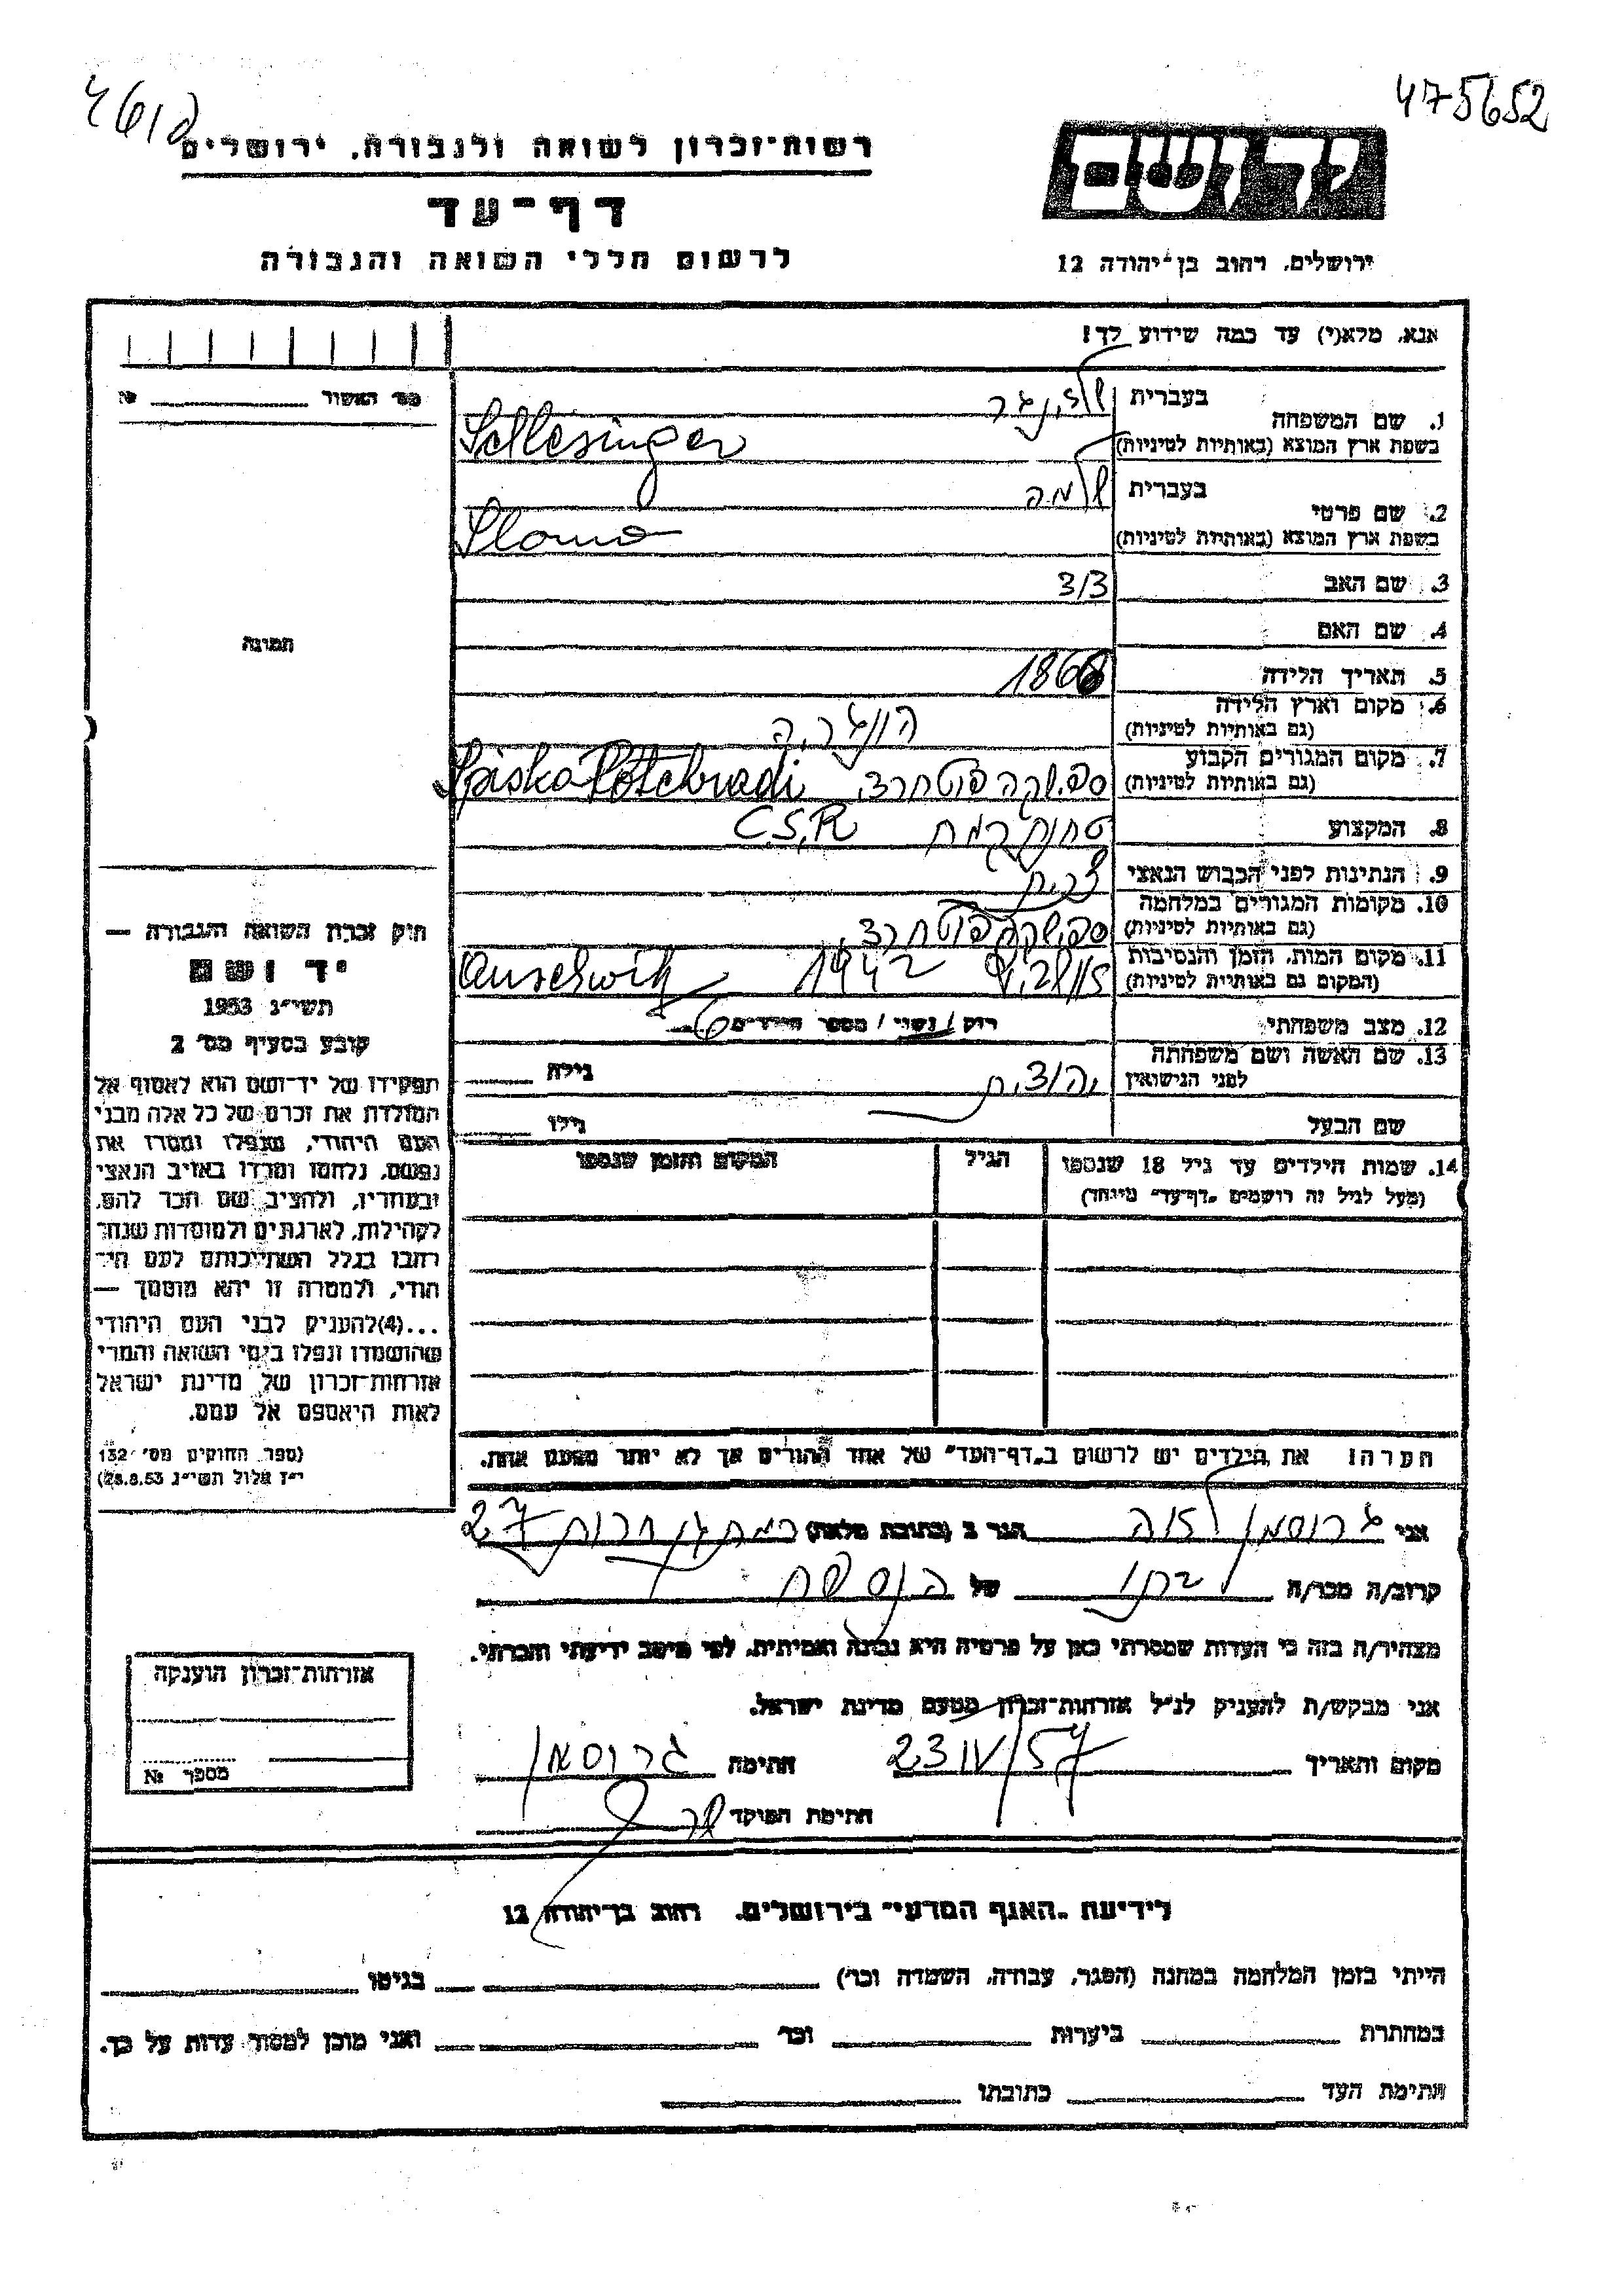 475652
רשות-זכרון לשואה ולגבורה. ירושלים
דף-עד
לרשום חללי השואה והגבורה
יד ושם
ירושלים, רחוב בן-יהודה 12
אנא, מלא(י) עד כמה שידוע לך!
מס' האשור № 
1. שם המשפחה בעברית שלזינגר
בשפת ארץ המוצא (באותיות לטיניות) Schlesinger
2. שם פרטי בעברית שלמה
בשפת ארץ המוצא (באותיות לטיניות) Slomo
3. שם האב
4. שם האם
5. תאריך הלידה 1868
6. מקום וארץ הלידה (גם באותיות לטיניות) הונגריה
7. מקום המגורים הקבוע (גם באותיות לטיניות)
8. המקצוע C.S.R
9. הנתינות לפני הכבוש הנאצי
10. מקומות המגורים במלחמה (גם באותיות לטיניות)
11. מקום המות, הזמן והנסיבות (המקום גם באותיות לטיניות) אושויץ 1942 Auschwitz
12. מצב משפחתי רוק / נשוי / מספר הילדים 6
13. שם האשה ושם משפחתה לפני הנישואין יהודית גילה
שם הבעל גילו
14. שמות הילדים עד גיל 18 שנספו
(מעל לגיל זה רושמים „דף-עד" מיוחד)
הגיל
המקום והזמן שנספו
הערה: את הילדים יש לרשום ב„דף-העד" של אחד ההורים אך לא יותר מפעם אחת.
תמונה
חוק זכרון השואה והגבורה —
יד ושם
תשי"ג 1953
קובע בסעיף מס' 2
תפקידו של יד-ושם הוא לאסוף אל
המולדת את זכרם של כל אלה מבני
העם היהודי, שנפלו ומסרו את
נפשם, נלחמו ומרדו באויב הנאצי
ובעוזריו, ולהציב שם וזכר להם,
לקהילות, לארגונים ולמוסדות שנחר
רחבו בגלל השתייכותם לעם הי־
הודי, ולמטרה זו יהא מוסמך —
...(4)להעניק לבני העם היהודי
שהושמדו ונפלו בימי השואה והמרי
אזרחות-זכרון של מדינת ישראל
לאות היאספם אל עמם.
(ספר החוקים מס' 132
י"ז אלול תשי"ג 28.8.53)
אני גרוסמן לאה הגר ב (כתובת מלאה) רמת גן חרות 27
קרוב/ה מכר/ה של
מצהיר/ה בזה כי העדות שמסרתי כאן על פרטיה היא נכונה ואמיתית, לפי מיטב ידיעתי והכרתי.
אני מבקש/ת להעניק לנ"ל אזרחות-זכרון מטעם מדינת ישראל.
מקום ותאריך 23 IV/57 חתימה גרוסמן
חתימת הפוקד
אזרחות-זכרון הוענקה
מספר №
לידיעת „האגף המדעי" בירושלים. רחוב בן-יהודה 12
הייתי בזמן המלחמה במחנה (הסגר, עבודה, השמדה וכו') בגיטו
במחתרת ביערות וכו' ואני מוכן למסור עדות על כך.
חתימת העד כתובתו